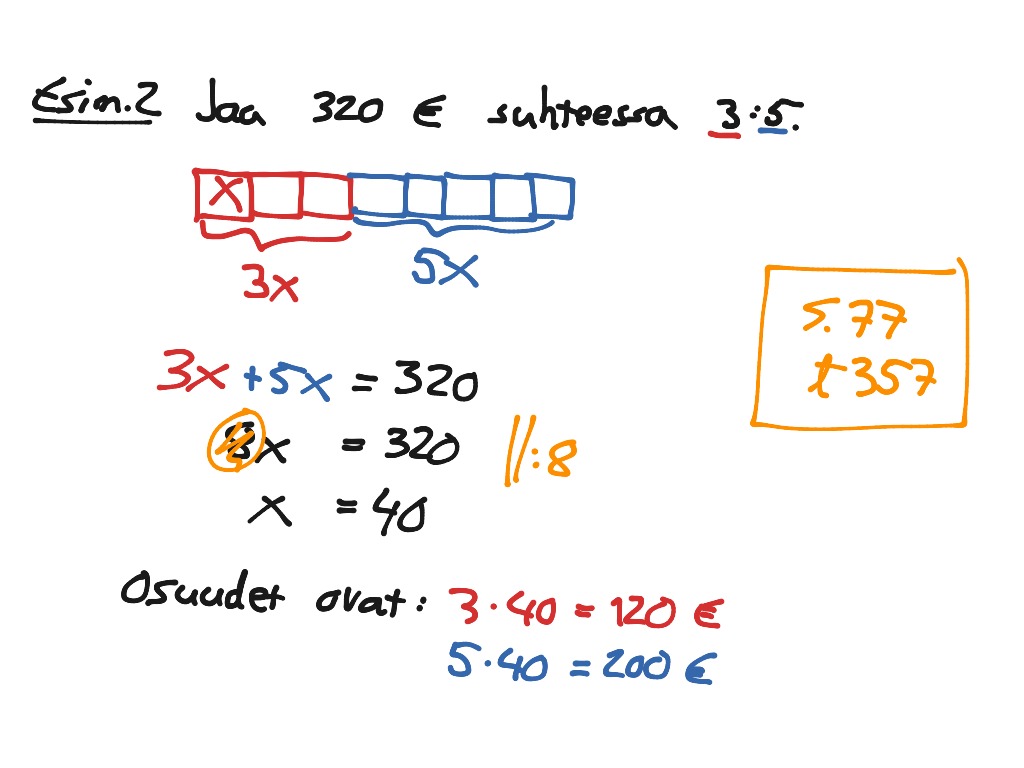 Esim.2 Jaa 320 € suhteessa 3:5.
x
3x 5x
s. 77
t 357
3x + 5x = 320
8x = 320 //:8
x = 40
Osuudet ovat: 3·40 = 120 €
5·40 = 200 €